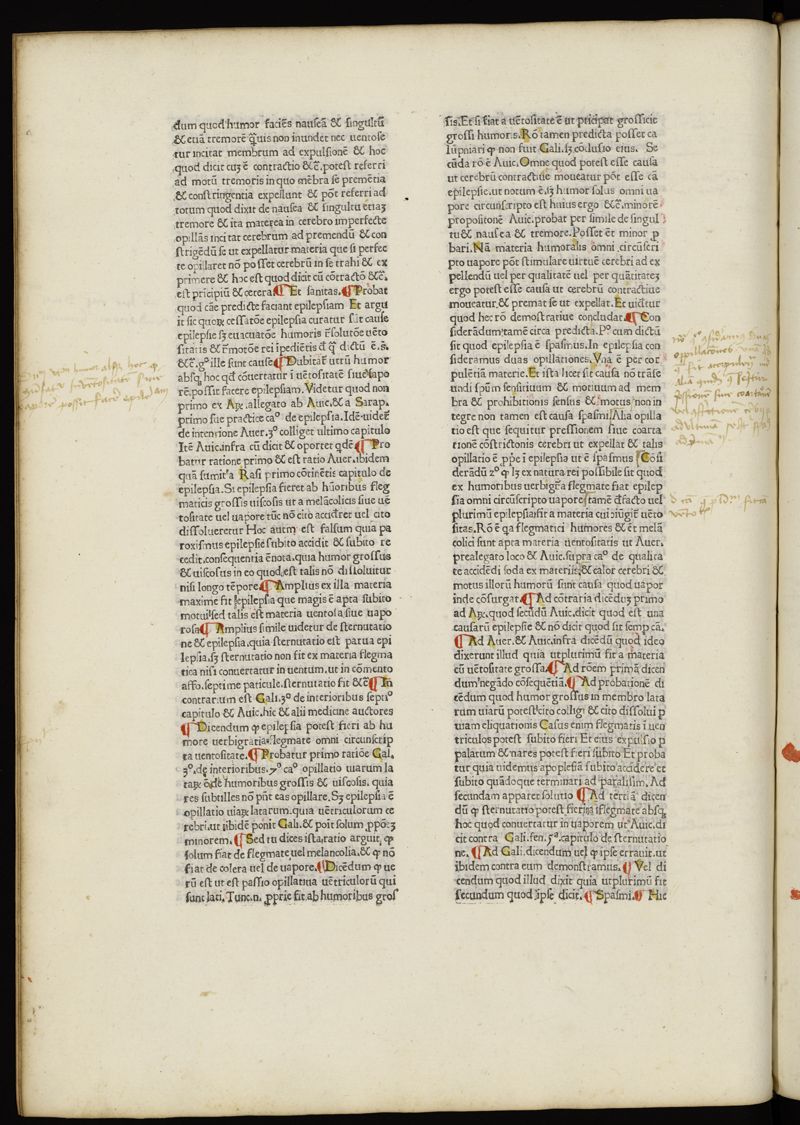 dum quod humor faciēs nauseā & singultū
& etiā tremorē quis non inundet nec uentose
tur incitat membrum ad expulsionē & hoc
quod dicit cuꝫ ē contractio &c̄. potest referri
ad motū tremoris in quo mēbra se premētia
& constringentia expellunt & pōt referri ad
totum quod dixit de nausea & singultu etiaꝫ
tremore & ita materea in cerebro imperfecte
opillās incitat cerebrum ad premendū & con
strigēdū se ut expellatur materia que si perfec
te opillaret nō posset cerebrū in se trahi & ex
primere & hoc est quod dicit cū cōtractō &c̄.
est pricipiū & cetera ¶ Et sanitas. ¶ Probat
quod cāe predicte faciant epilepsiam Et argu
it sic quoꝝ cessatōe epilepsia curatur sūt cause
epilepsie sꝫ euacuatōe humoris resolutōe uēto
sitatis & remotōe rei īpediētis
&c̄. gº ille sunt cause ¶ Dubitat̄ utrū humor
absqꝫ hoc qd̄ cōuertatur ī uētositatē siue uapo
rē. possit facere epilepsiam. Videtur quod non
primo ex Aꝝ. allegato ab Auic. & a Sarap.
primo sue practice caº de epilepsia. Idē uidet̄
de intentione Auer. 3º colliget ultimo capitulo
Itē Auic. infra cū dicit & oportet qd̄ē ¶ Pro
batur ratione primo & est ratio Auer. ibidem
quā sumit a Rasi primo cōtinētis capitulo de
epilepsia. Si epilepsia fieret ab hūoribus fleg
maticis grossis uiscosis ut a melācolicis siue uē
tositate uel uapore tūc nō cito accideret uel cito
dissolueretur Hoc autm̄ est falsum quia pa
roxismus epilepsie subito accidit & subito re
cedit. consequentia ē nota. quia humor grossus
& uiscosus in eo quod est talis nō dissoluitur
nisi longo tēpore. ¶ Amplius ex illa materia
maxime fit epilepsia que magis ē apta subito
motui sed talis est materia uentosa siue uapo
rosa ¶ Amplius simile uidetur de sternutatio
ne & epilepsia. quia sternutatio est parua epi
lepsia. sꝫ sternutatio non fit ex materia flegma
tica nisi conuertatur in uentum. ut in cōmento
affo. septime paticule. sternutatio fit &c̄ ¶ In
contrarium est Gali. 3º de interioribus septiº
capitulo & Auic. hic & alii medicine auctores
¶ Dicendum ꝙ epilepsia potest fieri ab hu
more uerbigratia flegmate omni circunscrip
ta uentositate. ¶ Probatur primo ratiōe Gal.
3º. de interioribus. 7º caº opillatio uiarum la
taꝝ ōde humoribus grossis & uiscosis. quia
res subtilles nō pn̄t eas opillare. Sꝫ epilepsia ē
opillatio uiaꝝ latarum. quia uētriculorum ce
rebri. ut ibidē ponit Gali. & poīt solum ꝓpōeꝫ
minorem. ¶ Sed tu dices ista ratio arguit. ꝙ
solum fiat de flegmate uel melancolia. & ꝙ nō
fiat de colera uel de uapore. ¶ Dicēdum ꝙ ue
rū est ut est passio opillatiua uētriculorū qui
sunt lati. Tunc. n. ꝓprie fit ab humoribus gros
sis. Et si fiat a uētositate ē ut pricipat grossicie
grossi humoris. Rō tamen predicta posset ca
lūpniari ꝙ non fuit Gali. sꝫ cōclusio eius. Se
cūda rō ē Auic. Omne quod potest esse causa
ut cerebrū contractiue moueatur pōt esse cā
epilepsie. ut notum ē. sꝫ humor solus omni ua
pore circunscripto est huius ergo &c̄. minorē
propositonē Auic. probat per simile de singul
tu & nausea & tremore. Posset ēt minor ꝓ
bari. Nā materia humoralis omni circūscri
pto uapore pōt stimulare uirtuē cerebri ad ex
pellendū uel per qualitatē uel per quātitateꝫ
ergo potest esse causa ut cerebrū contractiue
moueatur. & premat se ut expellat. Et uidetur
quod hec rō demostratiue concludat ¶ Con
siderādum tamē circa predicta. Pº cum dictū
sit quod epilepsia ē spasmus. In epilepsia con
sideramus duas opillationes. Vna ē per cor
pulētiā materie. Et ista licet sit causa nō trāse
undi spūm sensitiuum & motiuum ad mem
bra & prohibitionis sensus & motus non in
tegre non tamen est causa spasmi. Alia opilla
tio est que sequitur pressionem siue coarta
tionē cōstrictonis cerebri ut expellat & talis
opillatio ē ppe ī epilepsia ut ē spasmus ¶ Cosi
derādū 2º ꝙ lꝫ ex natura rei possibile sit quod
ex humoribus uerbigrā flegmate fiat epilep
sia omni circūscripto uapore tamē defacto uel
plurimū epilepsia fit a materia cui cōiūgit̄ uēto
sitas. Rō ē qa flegmatici humores & ēt melā
colici sunt apta materia uentositatis ut Auer.
prealegato loco & Auic. supra caº de qualita
te accidēdi soda ex materiis & calor cerebri &
motus illorū humorū sunt causa quod uapor
inde cōsurgat. ¶ Ad cōtraria dicēduꝫ primo
ad Aꝝ. quod secūdū Auic. dicit quod est una
causarū epilepsie & nō dicit quod sit semp cā.
¶ Ad Auer. & Auic. infra dicēdū quod ideo
dixerunt illud quia utplurimū fit a materia
cū uētositate grossa. ¶ Ad rōem primā dicen
dum negādo cōsequētiā. ¶ Ad probationē di
cēdum quod humor grossus in membro lata
rum uiarū potest cito colligi & cito dissolui p
uiam eliquationis Casus enim flegmatis ī uen
triculos potest subito fieri Et eius expulsio p
palatum & nares potest fieri subito Et proba
tur quia uidemus apoplesiā subito accidere et
subito quādoque terminari ad paralisim. Ad
secundam apparet solutio ¶ Ad tertiā dicen
dū ꝙ sternutatio potest fieri a flegmate absqꝫ
hoc quod conuertatur in uaporem ut Auic. di
cit contra Gali. fen. 5ª. capitulo de sternutatio
ne. ¶ Ad Gali. dicendum uel ꝙ ipse errauit. ut
ibidem contra eum demonstramus. ¶ Vel di
cendum quod illud dixit quia utplurimū fit
secundum quod ipse dicit. ¶ Spasmi. ¶ Hic